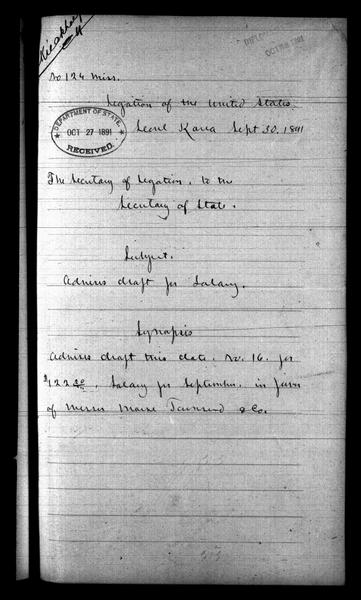 No 124 Miss.
DIPLOMATIC
Legation of the United States.
DEPARTMENT OF STATE
OCT 27 1891
RECEIVED.
Seoul Korea Sept 30. 1891
The Secretary of Legation. to the
Secretary of State.
Subject.
Advises draft for Salary.
Synopsis
Advises draft this date. No. 16. for
$122.50, Salary for September, in favor
of Messrs Morse Townsend & Co.